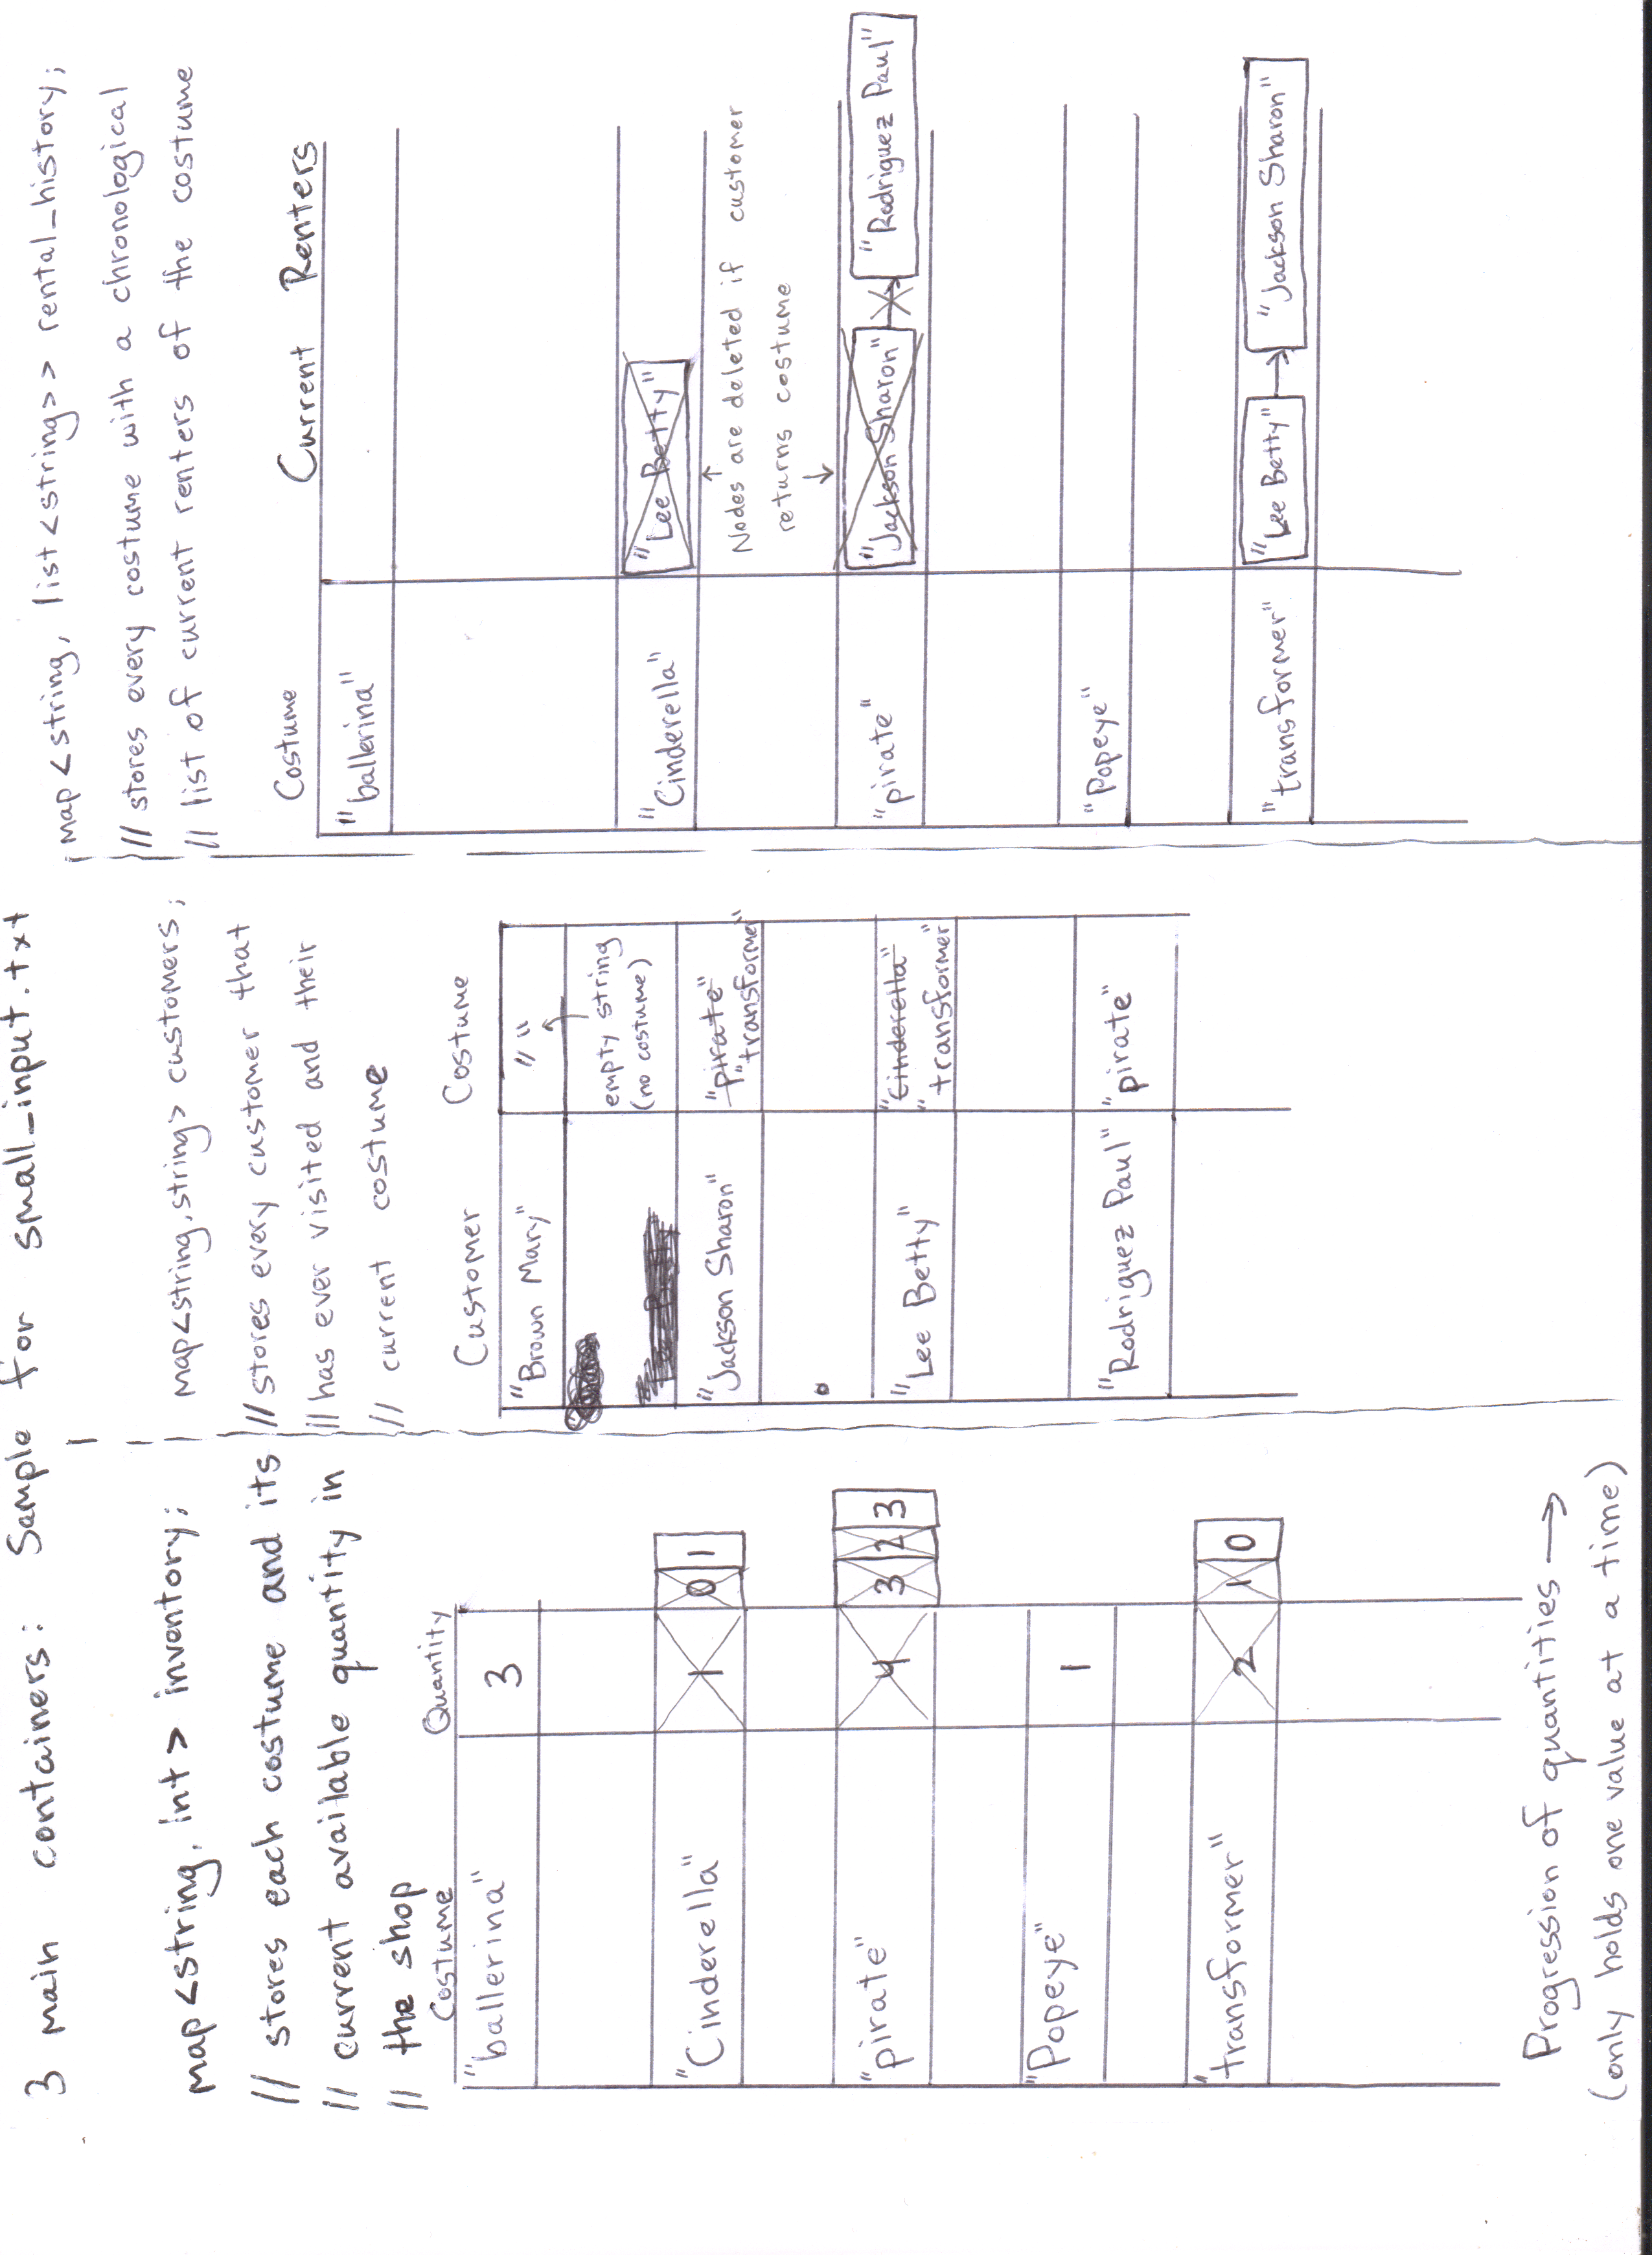 3 main containers: Sample for small_input.txt
map<string, int> inventory;
// stores each costume and its
// current available quantity in
// the shop
Costume Quantity
"ballerina" 3
"Cinderella" 1 0 1
"pirate" 4 3 2 3
"Popeye" 1
"transformer" 2 1 0
Progression of quantities →
(only holds one value at a time)
map<string, string> customers;
// stores every customer that
// has ever visited and their
// current costume
Customer Costume
"Brown Mary" ""
empty string
(no costume)
"Jackson Sharon" "pirate"
"transformer"
"Lee Betty" "Cinderella"
"transformer"
"Rodriguez Paul" "pirate"
map<string, list<string>> rental_history;
// stores every costume with a chronological
// list of current renters of the costume
Costume Current Renters
"ballerina"
"Cinderella" "Lee Betty"
Nodes are deleted if customer
returns costume
"pirate" "Jackson Sharon" "Rodriguez Paul"
"Popeye"
"transformer" "Lee Betty" → "Jackson Sharon"